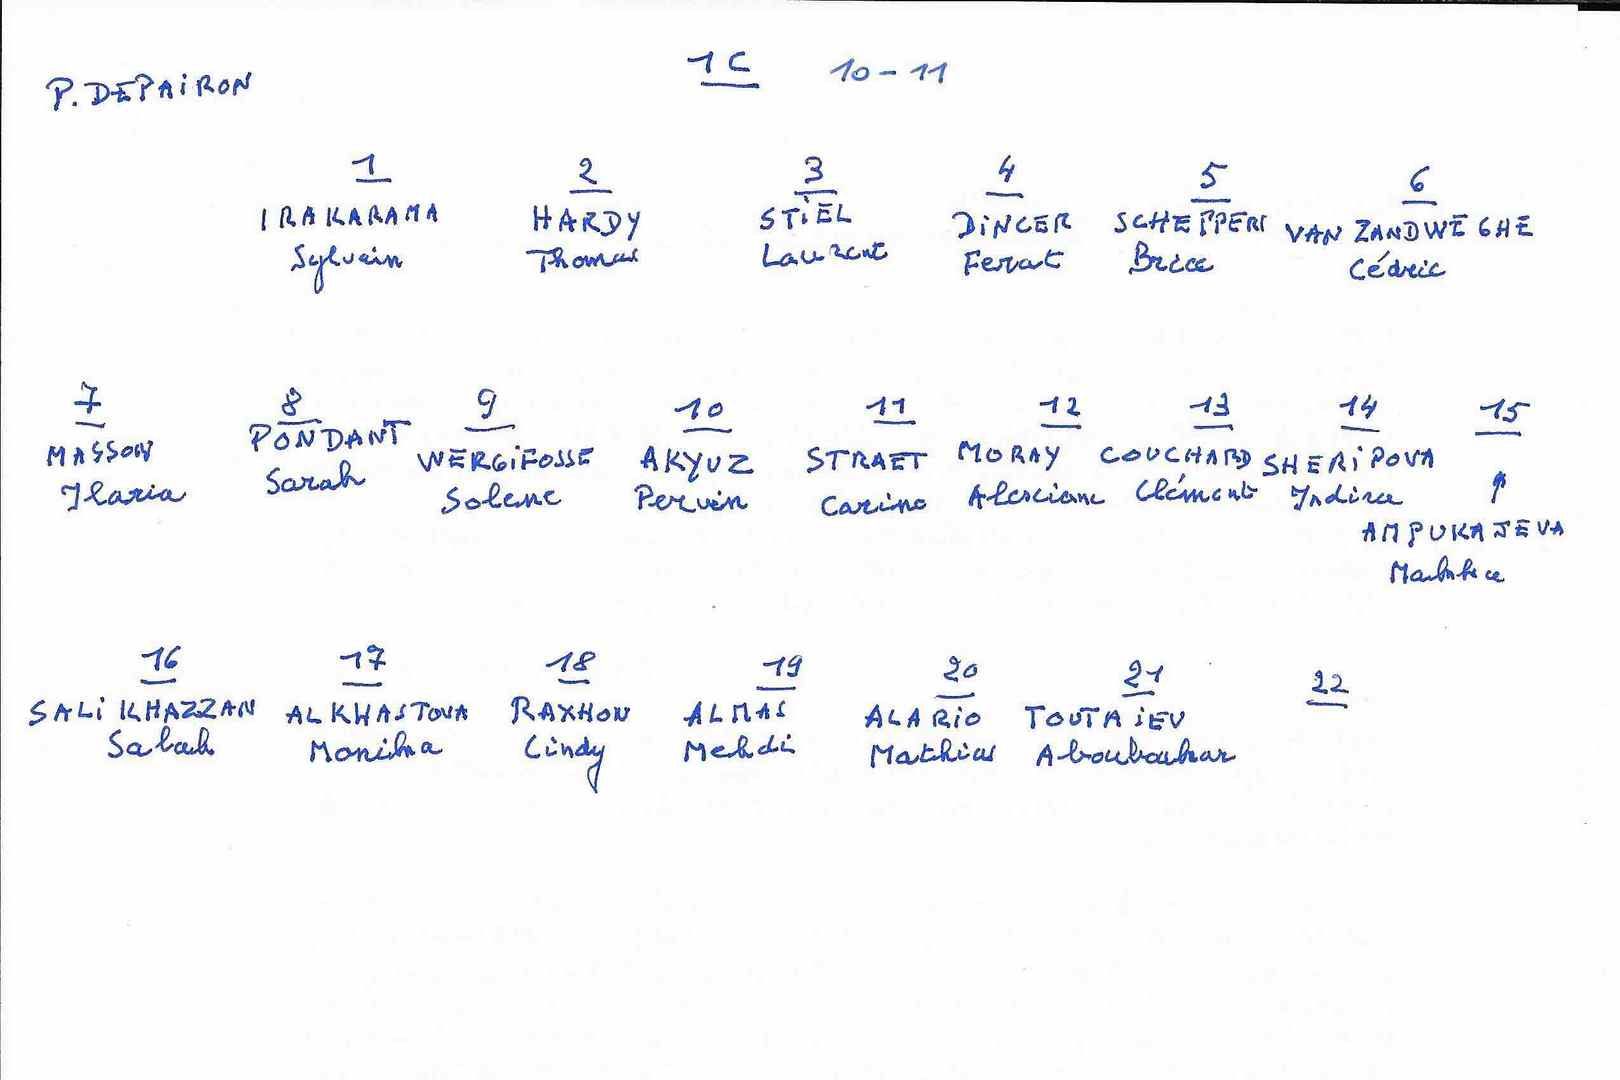 P. DEPAIRON
1C 10-11
1 2 3 4 5 6
IRAKARAMA HARDY STIEL DINCER SCHEPPERS VAN ZANDWEGHE
Sylvain Thomas Laurent Ferat Brice Cédric
7 8 9 10 11 12 13 14 15
MASSON PONDANT WERGIFOSSE AKYUZ STRAET MORAY COUCHARD SHERIPOVA
Ilaria Sarah Solene Pervin Carine Clément Indira
↑
AMPUKAJEVA
16 17 18 19 20 21 22
SALI KHAZZAN ALKHASTOVA RAXHON ALMAS ALARIO TOUTAIEV
Sabah Monika Cindy Mehdi Mathias Aboubakar